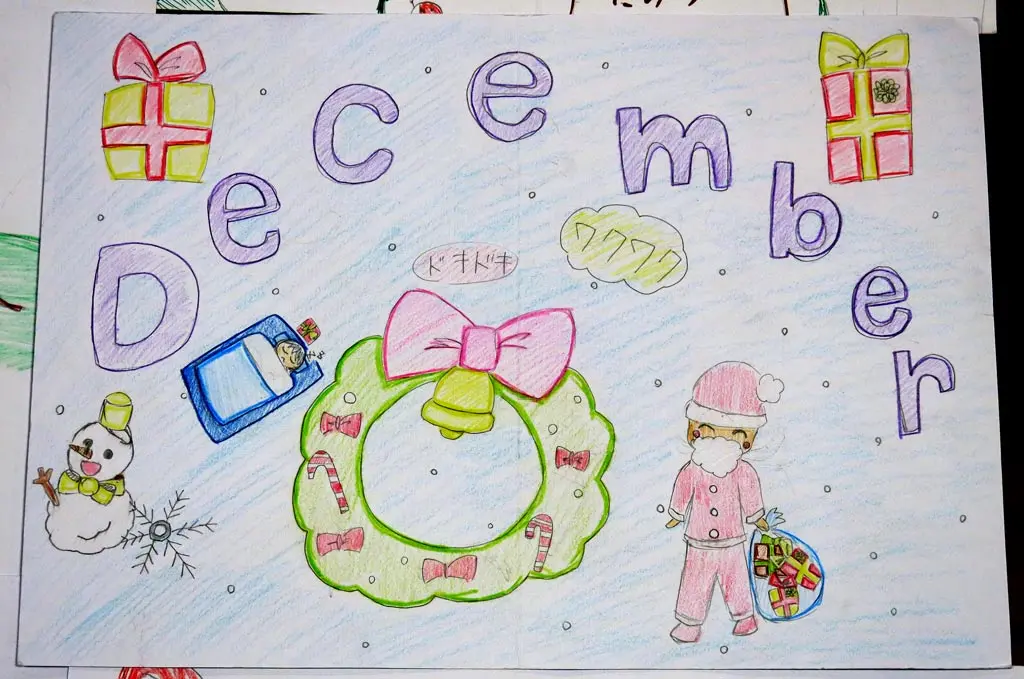 December
ドキドキ
ワクワク